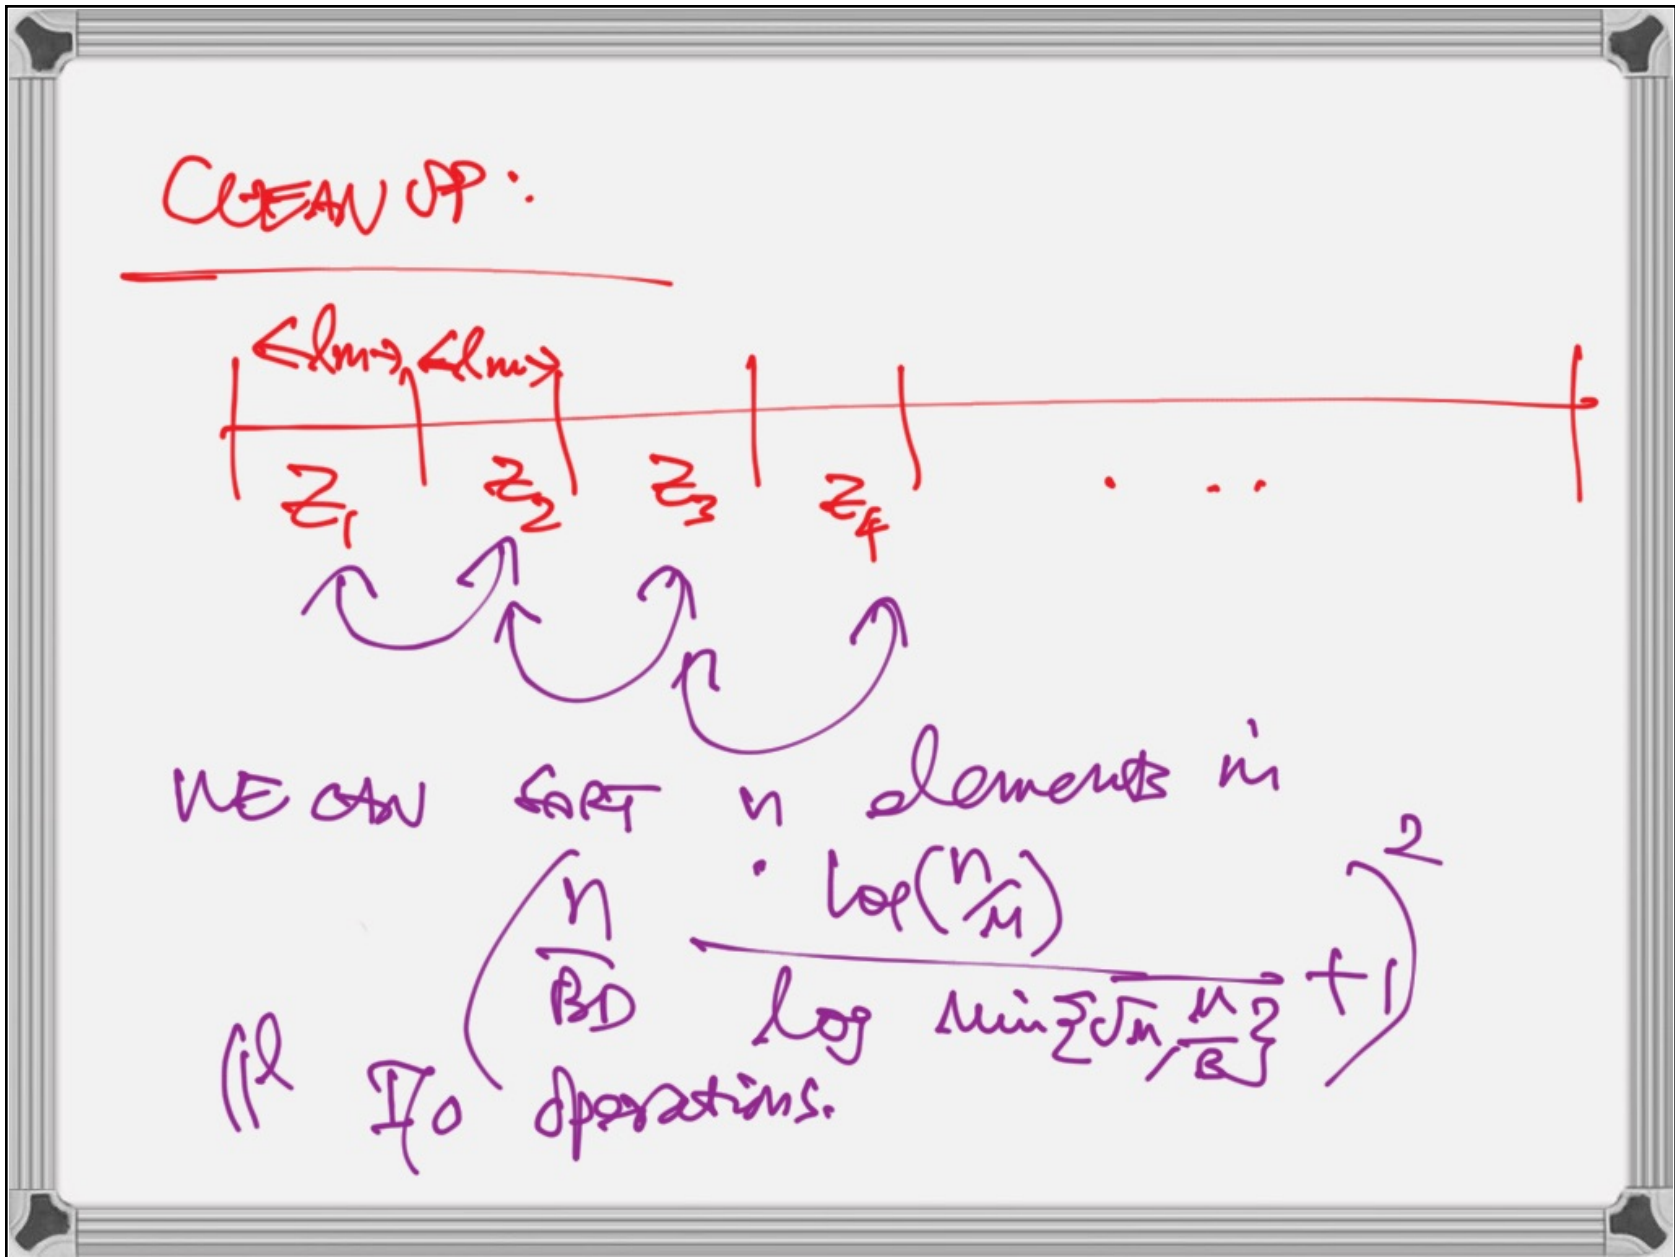 CLEAN UP:
<lm> <lm>
Z₁ Z₂ Z₃ Z₄ . . .
WE CAN SORT n elements in
( n/BD · log(n/M) / log min{√M, M/B} + 1 )²
||l I/O operations.